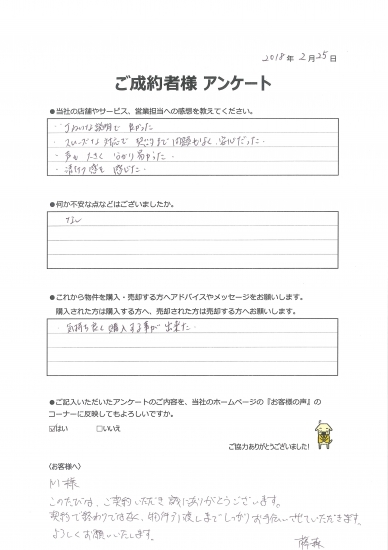 2018年2月25日
ご成約者様 アンケート
●当社の店舗やサービス、営業担当への感想を教えてください。
説明で 良かった
・スムーズな対応で 問題もなく、安心だった。
・声も 大きく 分かり易かった。
・清潔感を 感じた。
●何か不安な点などはございましたか。
なし
●これから物件を購入・売却する方へアドバイスやメッセージをお願いします。
購入された方は購入する方へ、売却された方は売却する方へお願いします。
・気持ち良く購入する事が出来た。
●ご記入いただいたアンケートのご内容を、当社のホームページの『お客様の声』の
コーナーに反映してもよろしいですか。
☑はい □いいえ
ご協力ありがとうございました!
〈お客様へ〉
様
このたびは、ご契約いただき誠にありがとうございます。
契約で終わりではなく、物件引き渡しまでしっかりお手伝いさせていただきます。
よろしくお願いいたします。
藤森